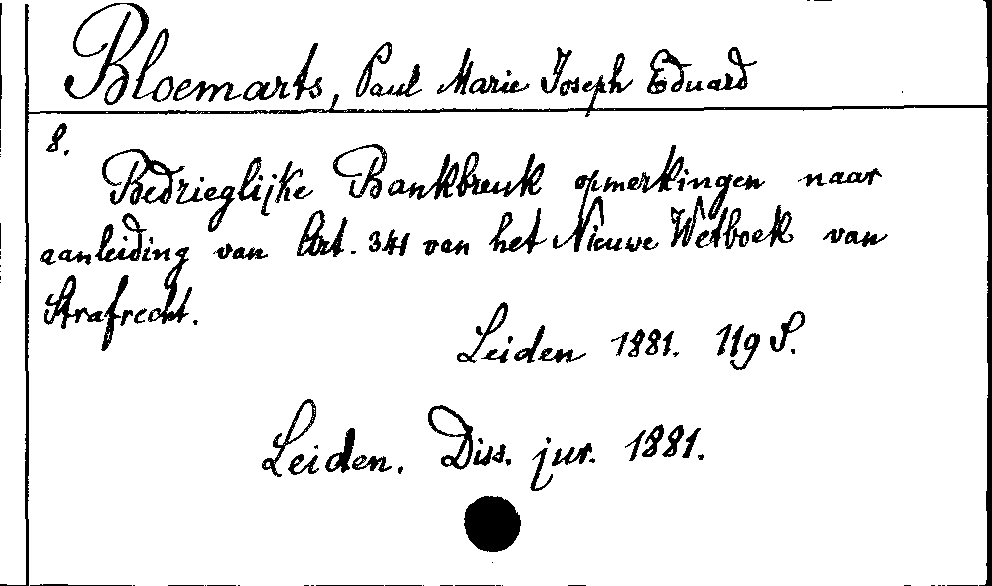 Bloemarts, Paul Marie Joseph Eduard
8.
Bedrieglijke Bankbreuk opmerkingen naar
aanleiding van Art. 341 van het Nieuwe Wetboek van
Strafrecht.
Leiden 1881. 119 S.
Leiden. Diss. jur. 1881.